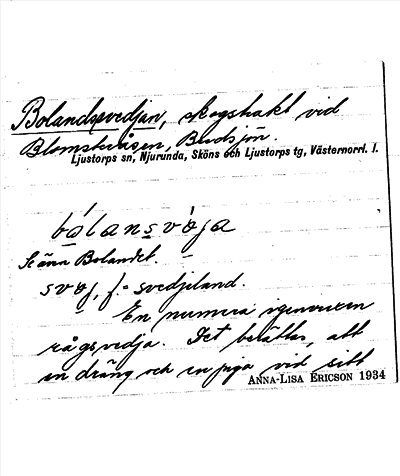 Bolandssvedjan, skogstrakt vid
Blomsteråsen, Budsjön.
Ljustorps sn, Njurunda, Sköns och Ljustorps tg, Västernorrl. l.
bólansvòja
Se äna Bolandet.
svoj, f. = svedjeland.
En numera igenvuxen
rågsvedja. Det berättas, att
en dräng och en piga vid sitt
ANNA-LISA ERICSON 1934